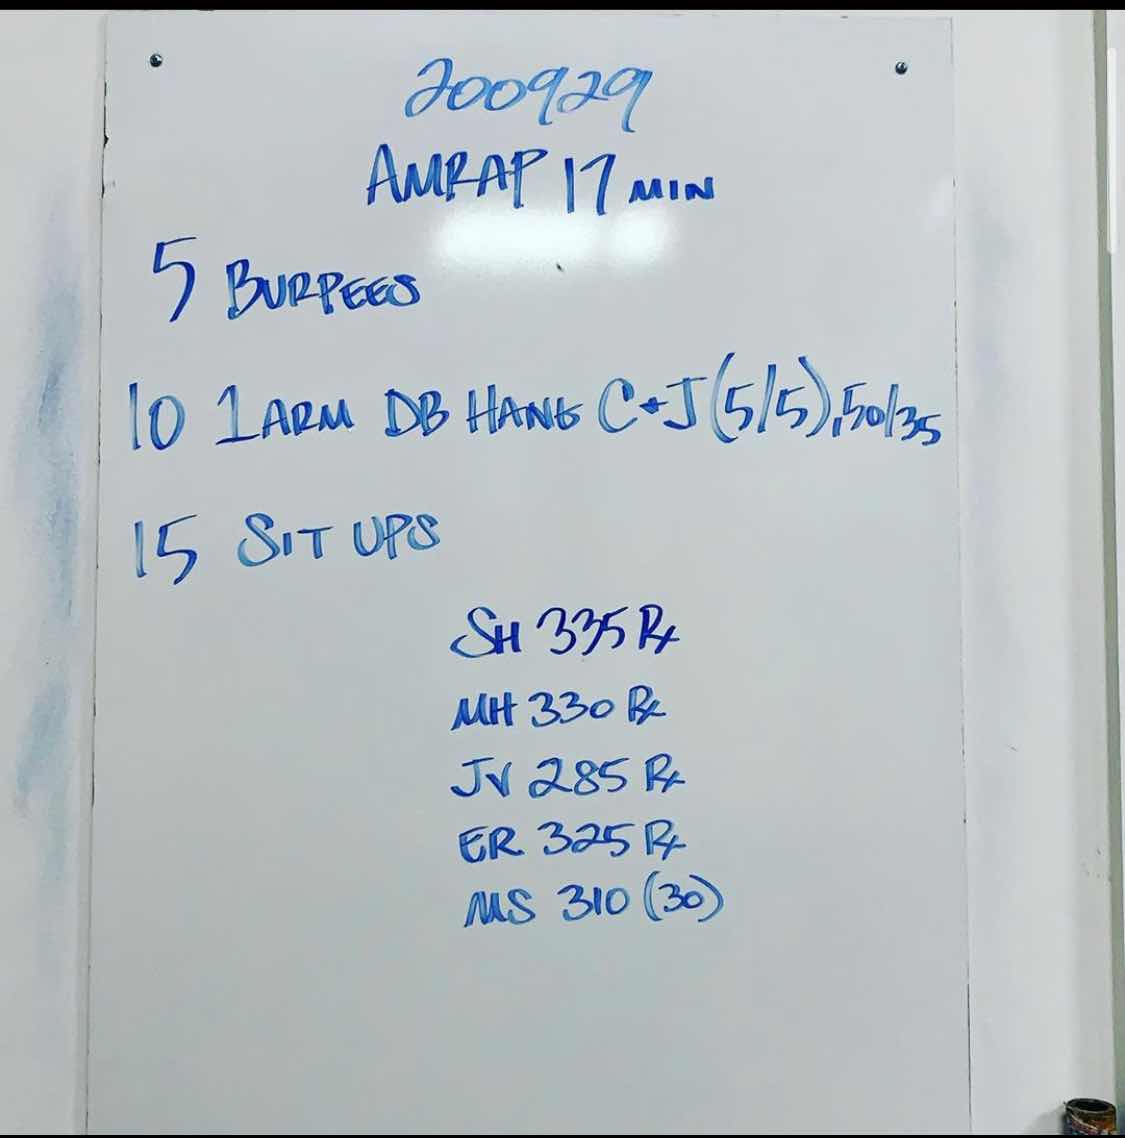 200929
AMRAP 17 MIN
5 BURPEES
10 1 ARM DB HANG C+J (5/5), 50/35
15 SIT UPS
SH 335 Rx
MH 330 Rx
JV 285 Rx
ER 325 Rx
MS 310 (30)